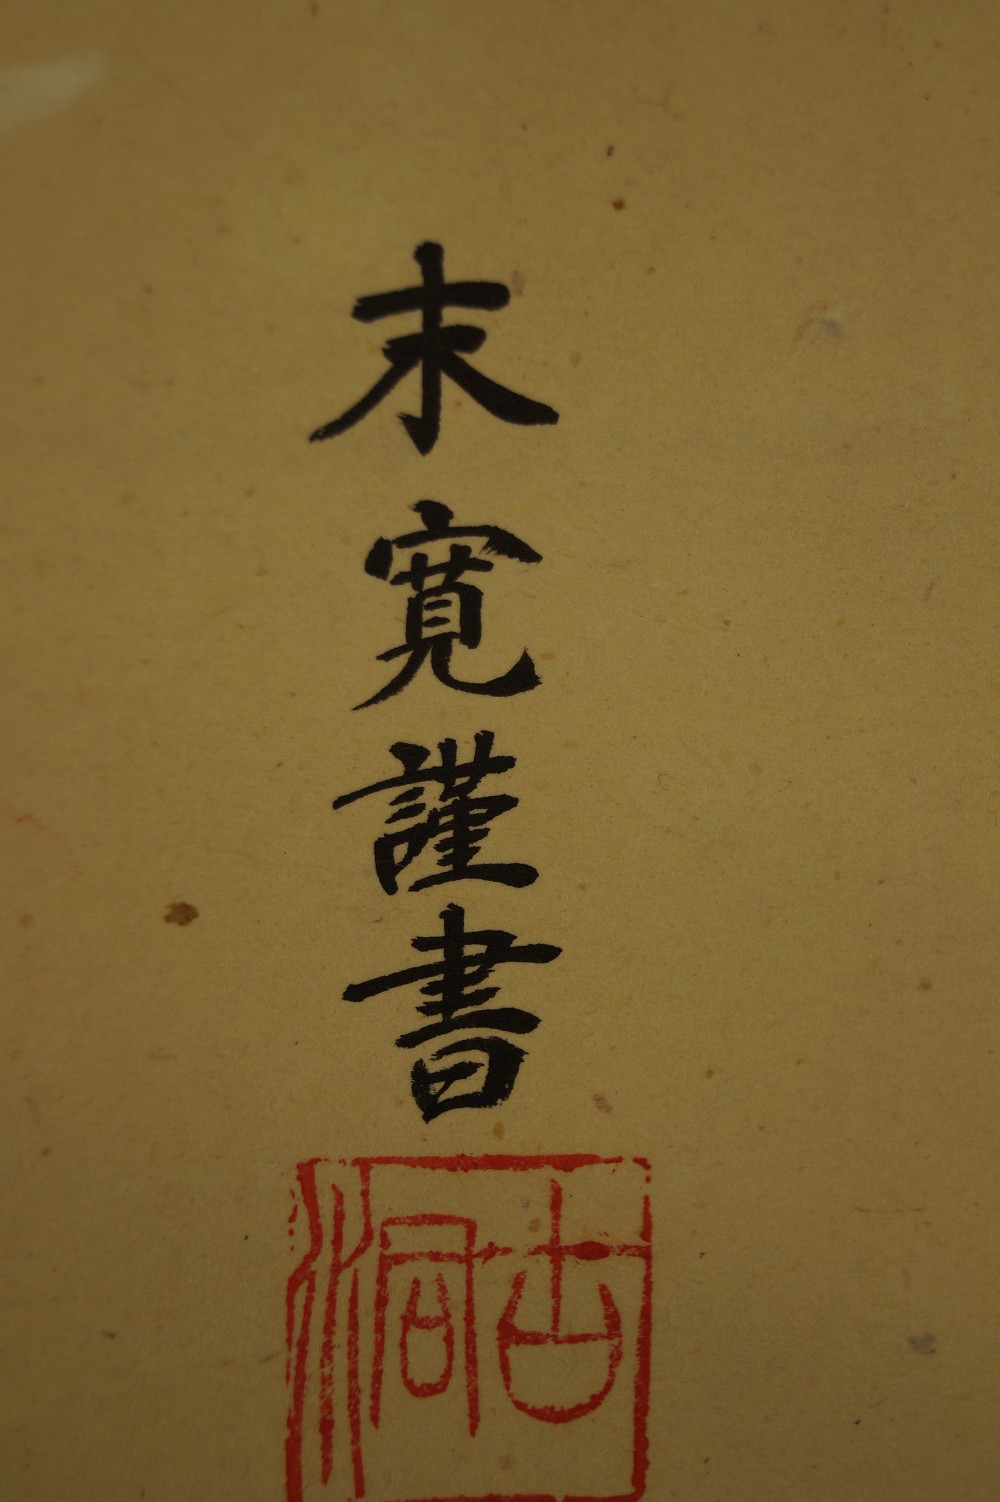 末寛謹書
古洞